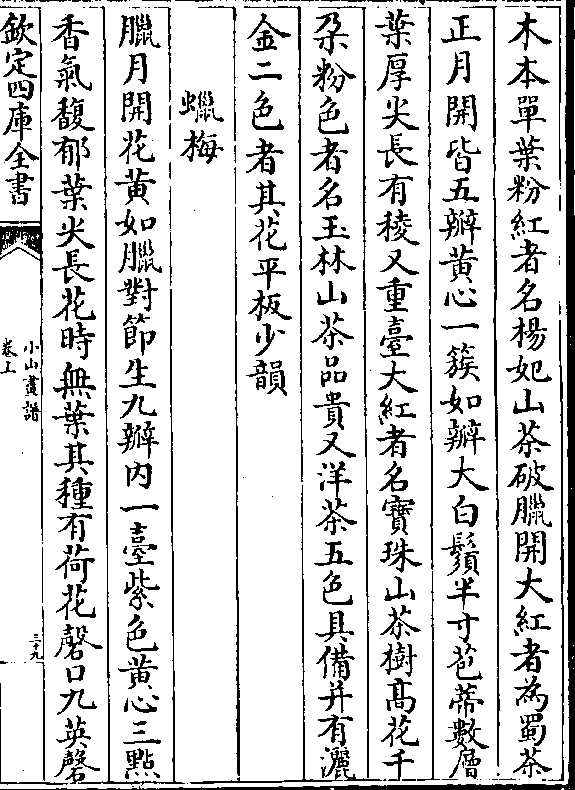 木本單葉粉紅者名楊妃山茶破臘開大紅者為蜀茶
正月開皆五瓣黃心一簇如瓣大白鬚半寸苞蒂數層
葉厚尖長有稜又重臺大紅者名寶珠山茶樹高花千
朶粉色者名玉林山茶品貴又洋茶五色具備并有灑
金二色者其花平板少韻
蠟梅
臘月開花黃如臘對節生九瓣内一臺紫色黃心三點
香氣馥郁葉尖長花時無葉其種有荷花磬口九英磬
欽定四庫全書
小山畫譜
卷上
三十九